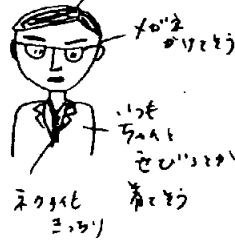 メガネ
かけてそう
いつも
ちゃんと
せびろとか
着てそう
ネクタイも
きっちり